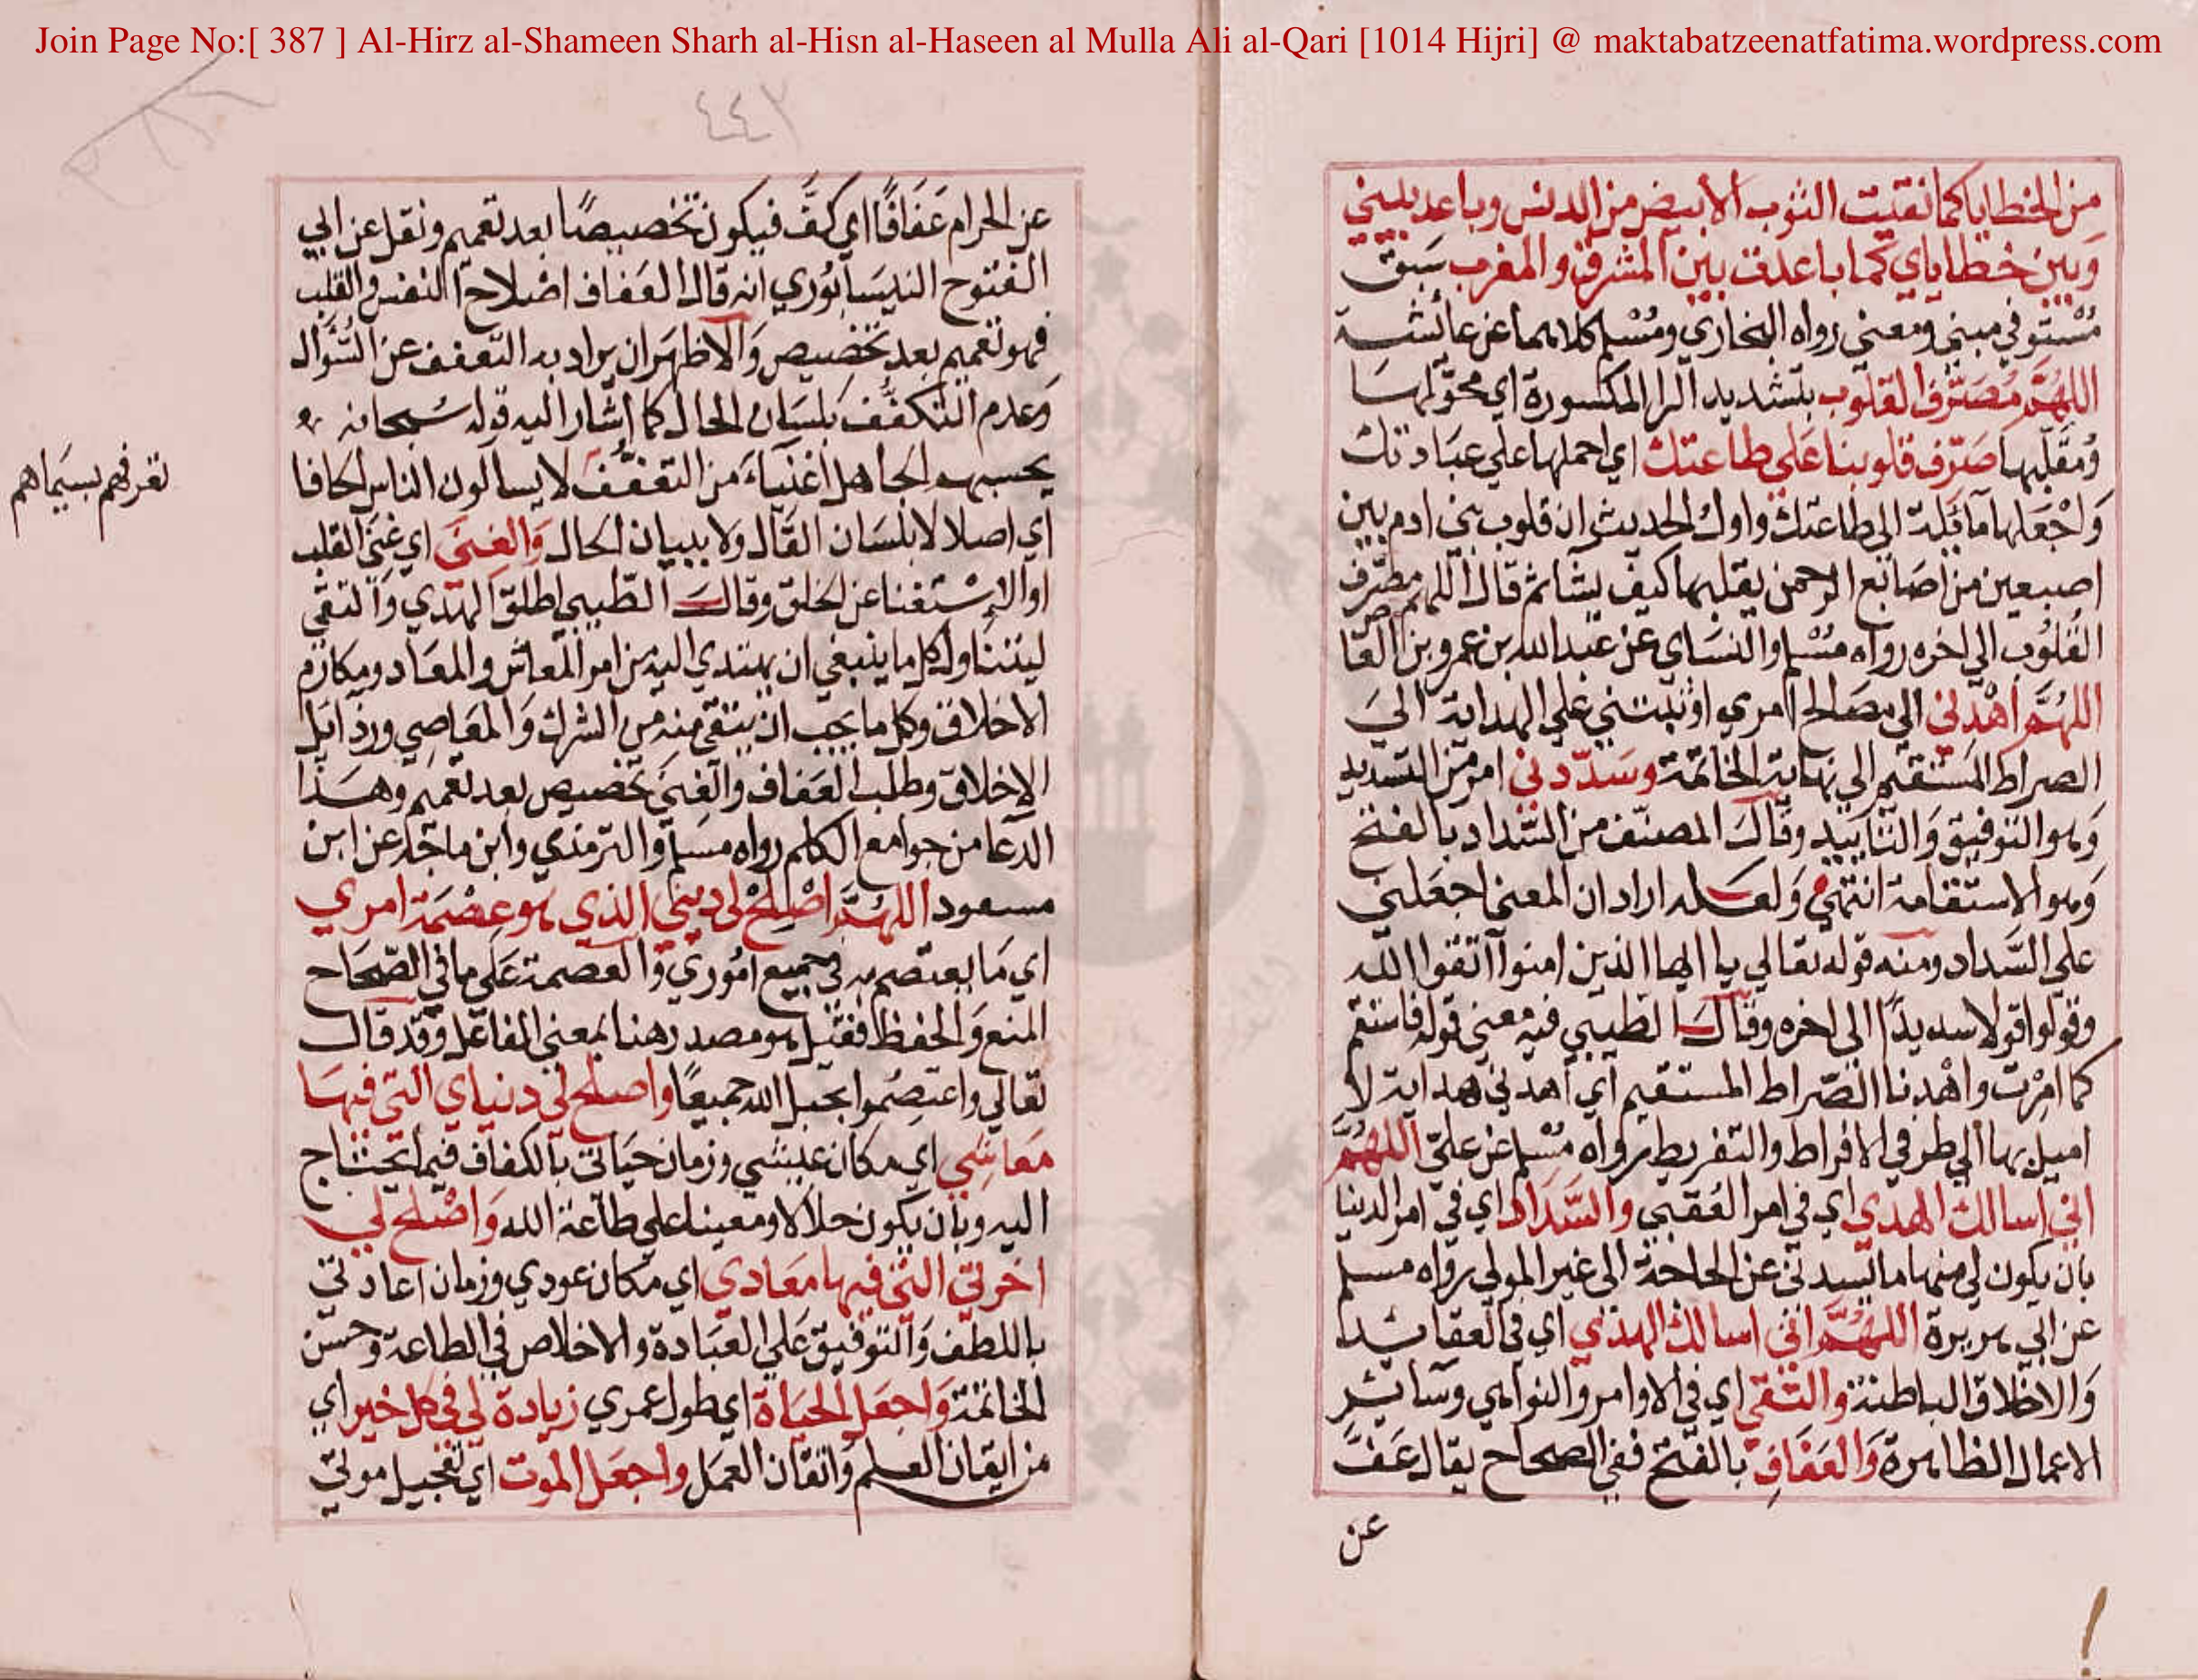 Join Page No:[ 387 ] Al-Hirz al-Shameen Sharh al-Hisn al-Haseen al Mulla Ali al-Qari [1014 Hijri] @ maktabatzeenatfatima.wordpress.com
من الخطايا كما نقيت الثوب الأبيض من الدنس وباعد بيني
وبين خطاياي كما باعدت بين المشرق والمغرب سبق
مستوفي مبني ومعني رواه البخاري ومسلم كلاهما عن عائشة
اللهم مصرف القلوب بتشديد الرا المكسورة اي محولها
ومقلبها صرف قلوبنا علي طاعتك اي احملها علي عبادتك
واجعلها مائلة الي طاعتك واول الحديث ان قلوب بني ادم بين
اصبعين من اصابع الرحمن يقلبها كيف يشا ثم قال اللهم مصرف
القلوب الي اخره رواه مسلم والنساي عن عبد الله بن عمرو بن العا
ص
اللهم اهدني الي مصالح امري او ثبتني علي الهداية الي
الصراط المستقيم الي نهاية الخاتمة وسددني امر من التسديد
وهو التوفيق والتاييد وقال المصنف من السداد بالفتح
وهو الاستقامة انتهي ولعله اراد ان المعني اجعلني
علي السداد ومنه قوله تعالي يا ايها الذين امنوا اتقوا الله
وقولوا قولا سديدا الي اخره وقال الطيبي فيه معني قوله فاستقم
كما امرت واهدنا الصراط المستقيم اي اهدني هداية لا
اميل بها الي طرفي الافراط والتفريط رواه مسلم عن علي اللهم
اني اسالك الهدي اي في امر العقبي والسداد اي في امر الدنيا
بان يكون لي منهما ما يسدني عن الحاجة الي غير المولي رواه مسلم
عن ابي هريرة اللهم اني اسالك الهدي اي في العقائد
والاخلاق الباطنة والتقي اي في الاوامر والنواهي وسائر
الاعمال الظاهرة والعفاف بالفتح ففي الصحاح يقال عف
عن
٤٤٢
عن الحرام عفافا اي كف فيكون تخصيصا بعد تعميم ونقل عن ابي
الفتوح النيسابوري انه قال العفاف اصلاح النفس والقلب
فهو تعميم بعد تخصيص والاظهر ان يراد به التعفف عن السؤال
وعدم التكفف بلسان الحال كما اشار اليه قوله سبحانه
يحسبهم الجاهل اغنياء من التعفف لا يسالون الناس الحافا
تعرفهم بسيماهم
اي اصلا لا بلسان القال ولا ببيان الحال والغني اي غني القلب
او الاستغنا عن الخلق وقال الطيبي اطلق الهدي والتقي
ليتناول كل ما ينبغي ان يهتدي اليه من امر المعاش والمعاد ومكارم
الاخلاق وكل ما يجب ان يتقي منه من الشرك والمعاصي ورذايل
الاخلاق وطلب العفاف والغني تخصيص بعد تعميم وهذا
الدعا من جوامع الكلم رواه مسلم والترمذي وابن ماجه عن ابن
مسعود اللهم اصلح لي ديني الذي هو عصمة امري
اي ما يعتصم به في جميع اموري والعصمة علي ما في الصحاح
المنع والحفظ فقيل هو مصدر هنا بمعني الفاعل وقد قال
تعالي واعتصموا بحبل الله جميعا واصلح لي دنياي التي فيها
معاشي اي مكان عيشي وزمان حياتي بالكفاف فيما يحتاج
اليه وبان يكون حلالا ومعينا علي طاعة الله واصلح لي
اخرتي التي فيها معادي اي مكان عودي وزمان اعادتي
باللطف والتوفيق علي العبادة والاخلاص في الطاعة وحسن
الخاتمة واجعل الحياة اي طول عمري زيادة لي في كل خير اي
من ايقان العلم واتقان العمل واجعل الموت اي تعجيل موتي